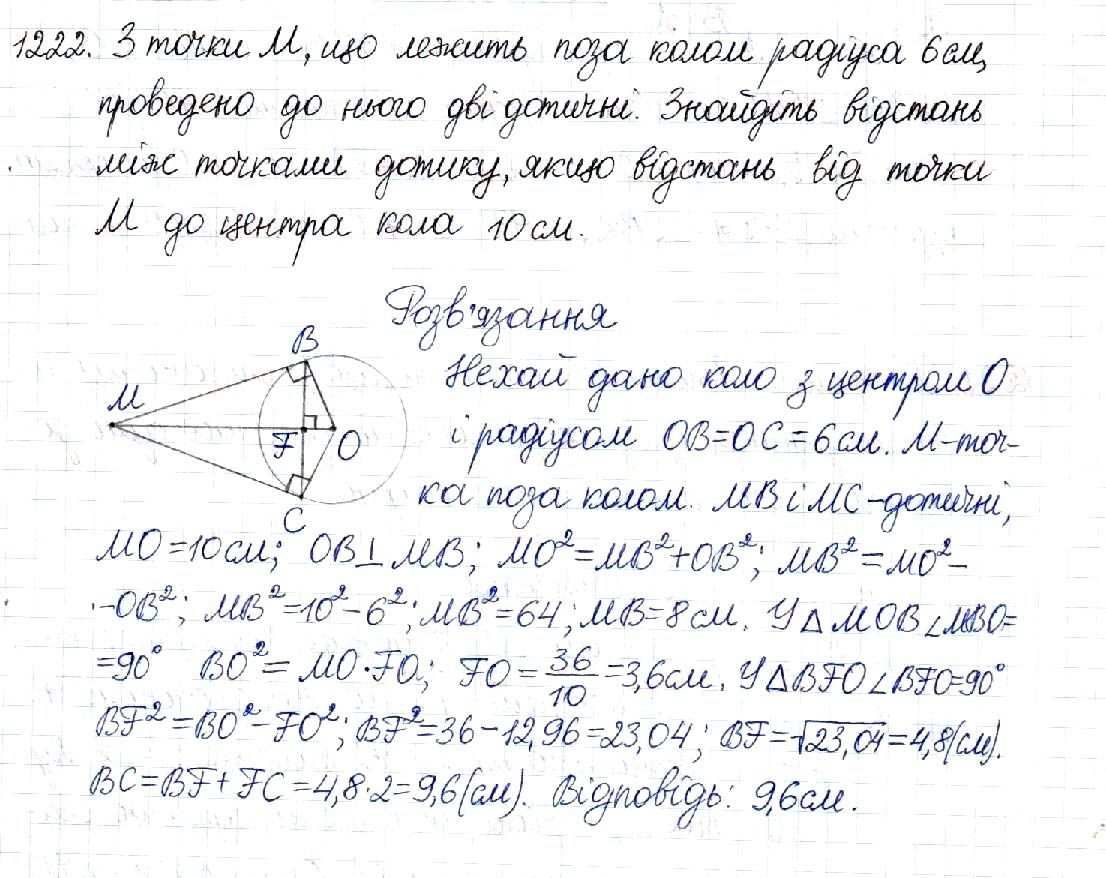 1222. З точки М, що лежить поза колом радіуса 6 см,
проведено до нього дві дотичні. Знайдіть відстань
між точками дотику, якщо відстань від точки
М до центра кола 10 см.
Розв'язання
B
M
F
O
C
Нехай дано коло з центром О
і радіусом OB=OC=6 см. М-точ-
ка поза колом. MB і MC-дотичні,
MO=10 см; OB⊥MB; MO²=MB²+OB²; MB²=MO²-
-OB²; MB²=10²-6²; MB²=64; MB=8 см. У △MOB ∠MBO=
=90° BO²=MO·FO; FO=36/10=3,6 см. У △BFO ∠BFO=90°
BF²=BO²-FO²; BF²=36-12,96=23,04; BF=√23,04=4,8(см).
BC=BF+FC=4,8·2=9,6(см). Відповідь: 9,6 см.